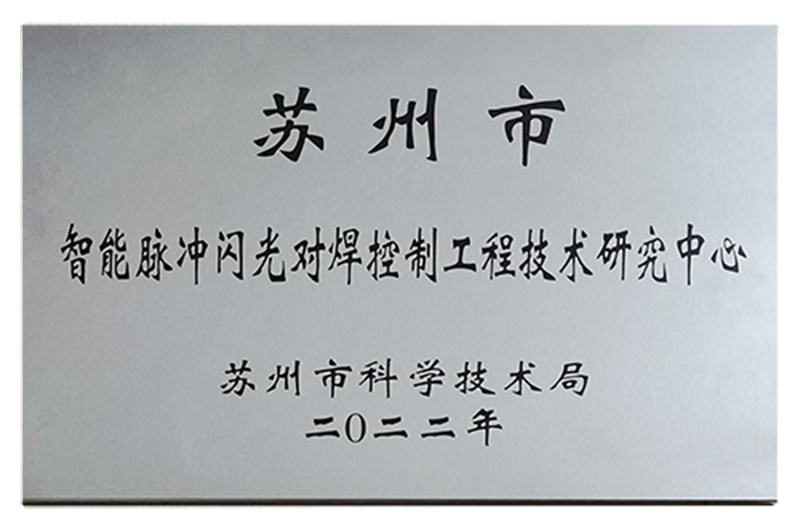 苏州市
智能脉冲闪光对焊控制工程技术研究中心
苏州市科学技术局
二0二二年